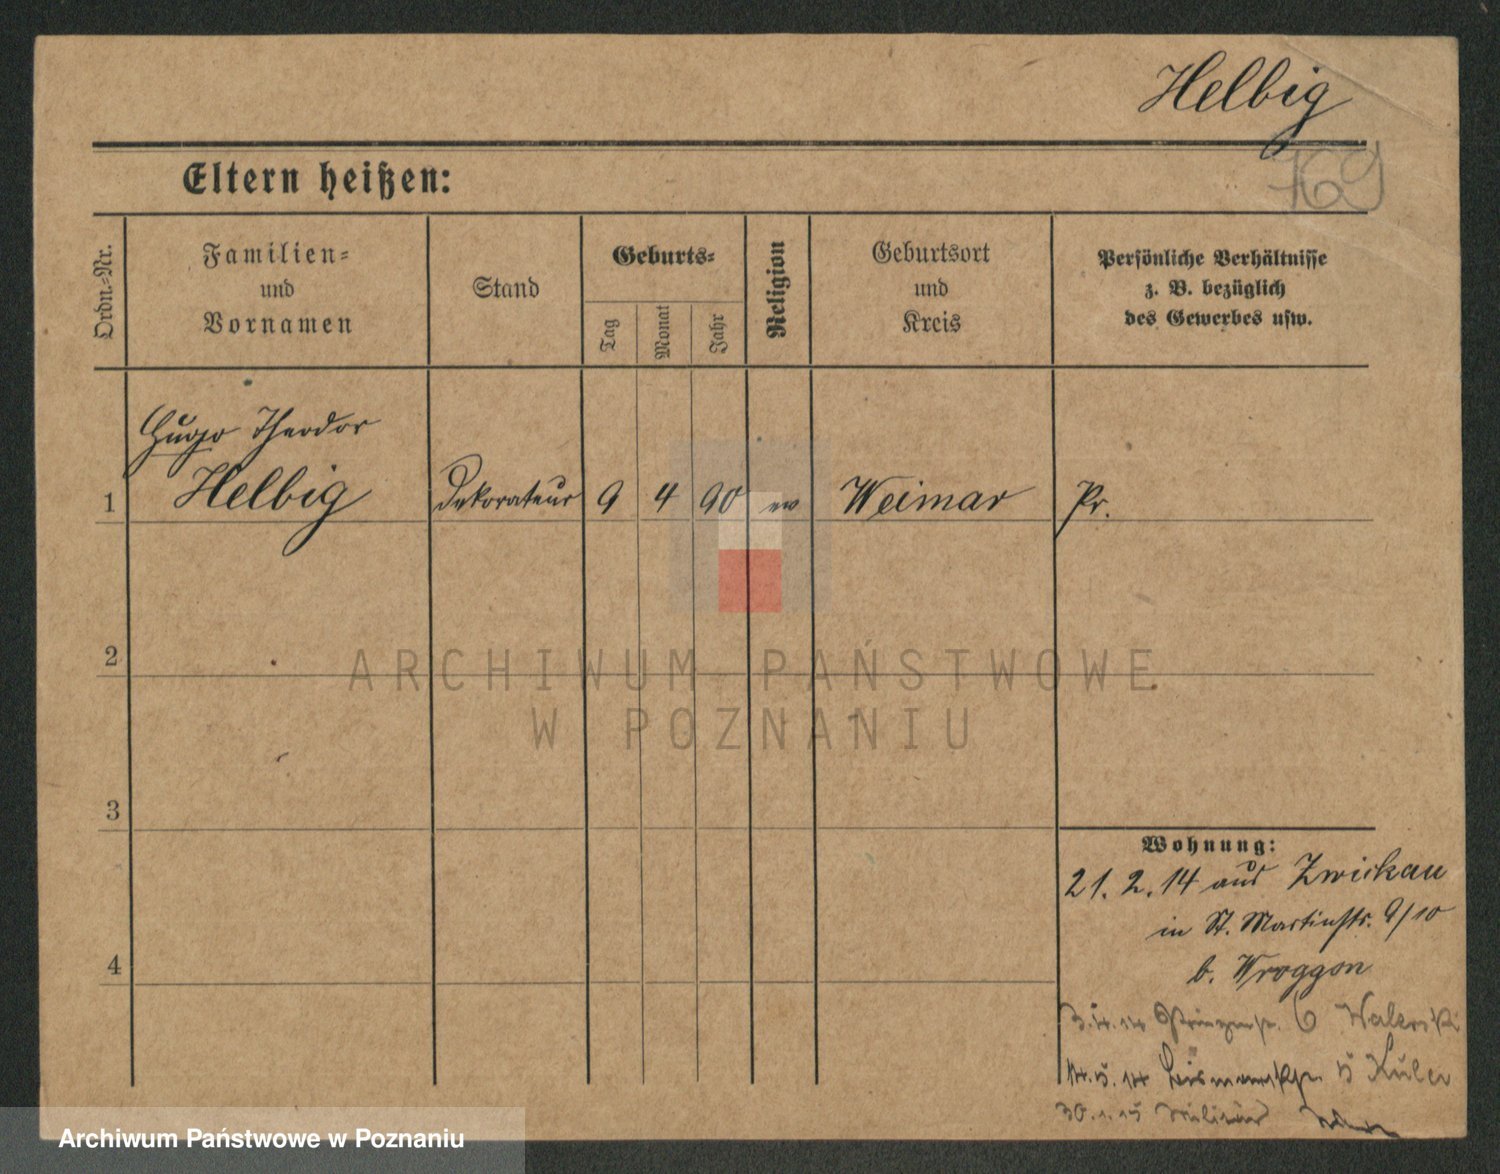 Helbig
169
Eltern heißen:
Ordn.-Nr.
Familien-
und
Vornamen
Stand
Geburts-
Tag
Monat
Jahr
Religion
Geburtsort
und
Kreis
Persönliche Verhältnisse
z. B. bezüglich
des Gewerbes usw.
Hugo Theodor
1 Helbig Dekorateur 9 4 90 ev Weimar Pr.
2
ARCHIWUM PAŃSTWOWE
W POZNANIU
3
Wohnung:
21. 2. 14 aus Zwickau
in St. Martinstr. 9/10
4
b. Wroggon
3.4.14 6 Walerski
14.5.14 Bismarckstr. 5
30.1.15 Militär
Archiwum Państwowe w Poznaniu